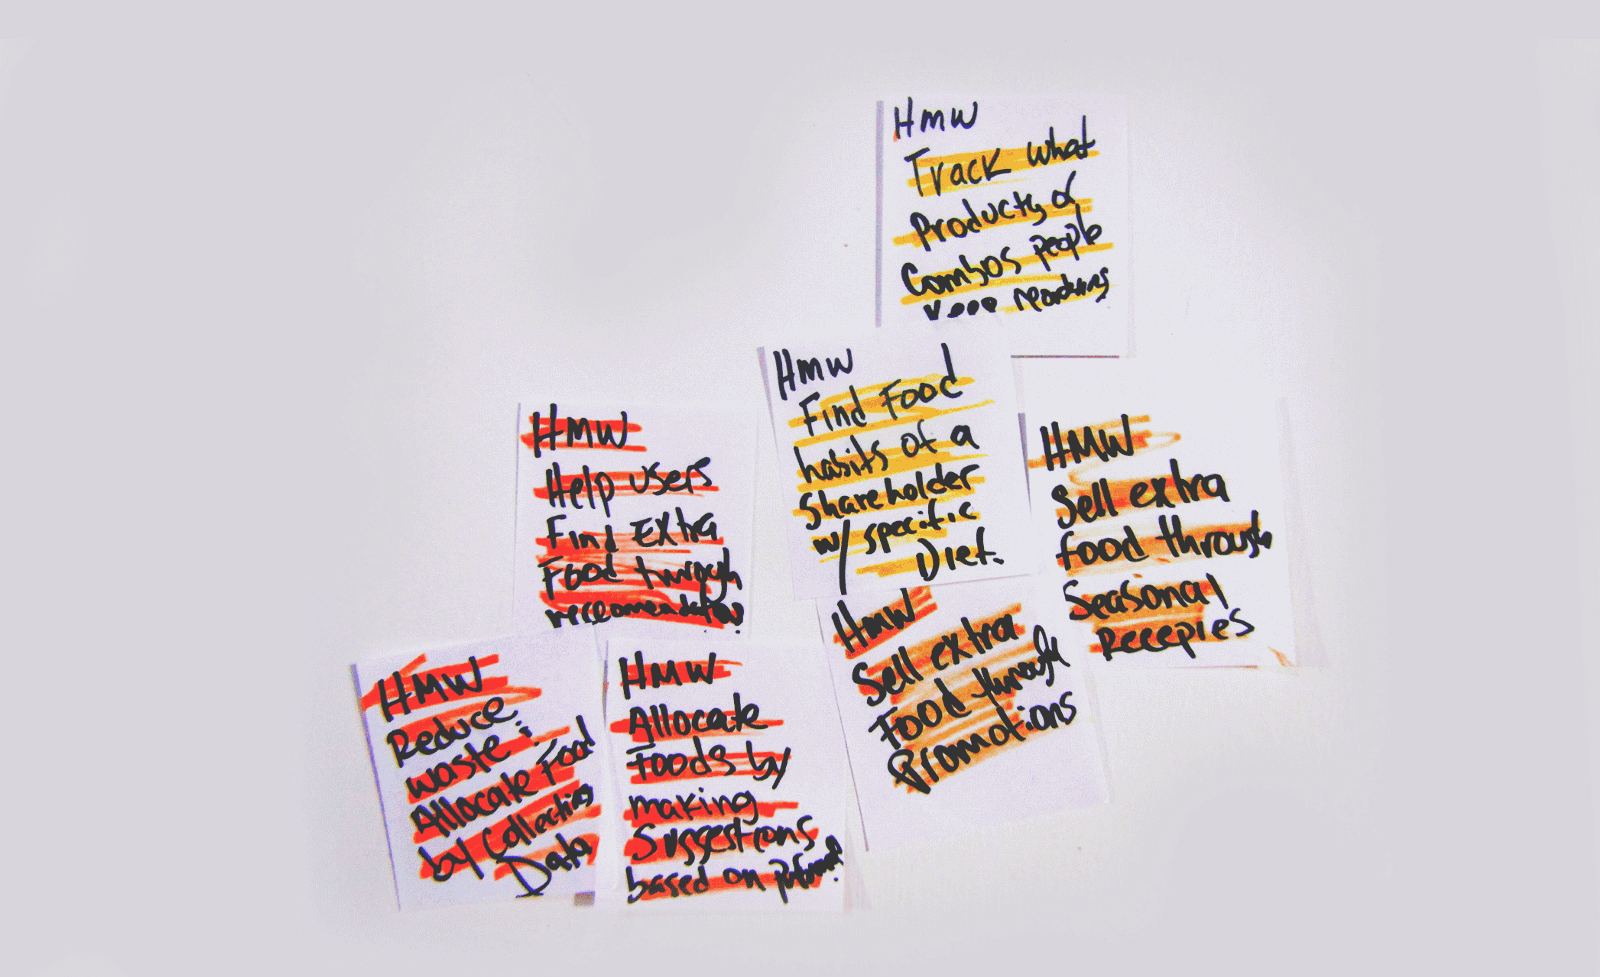 HMW
Track what
Products or
Combos people
HMW
Find Food
habits of a
Shareholder
w/ specific
Diet.
HMW
Help users
Find Extra
Food through
HMW
Sell extra
food through
Seasonal
Recepies
HMW
Sell extra
Food through
Promotions
HMW
Reduce
waste:
Allocate Food
by Collecting
Data
HMW
Allocate
Foods by
making
Suggestions
based on